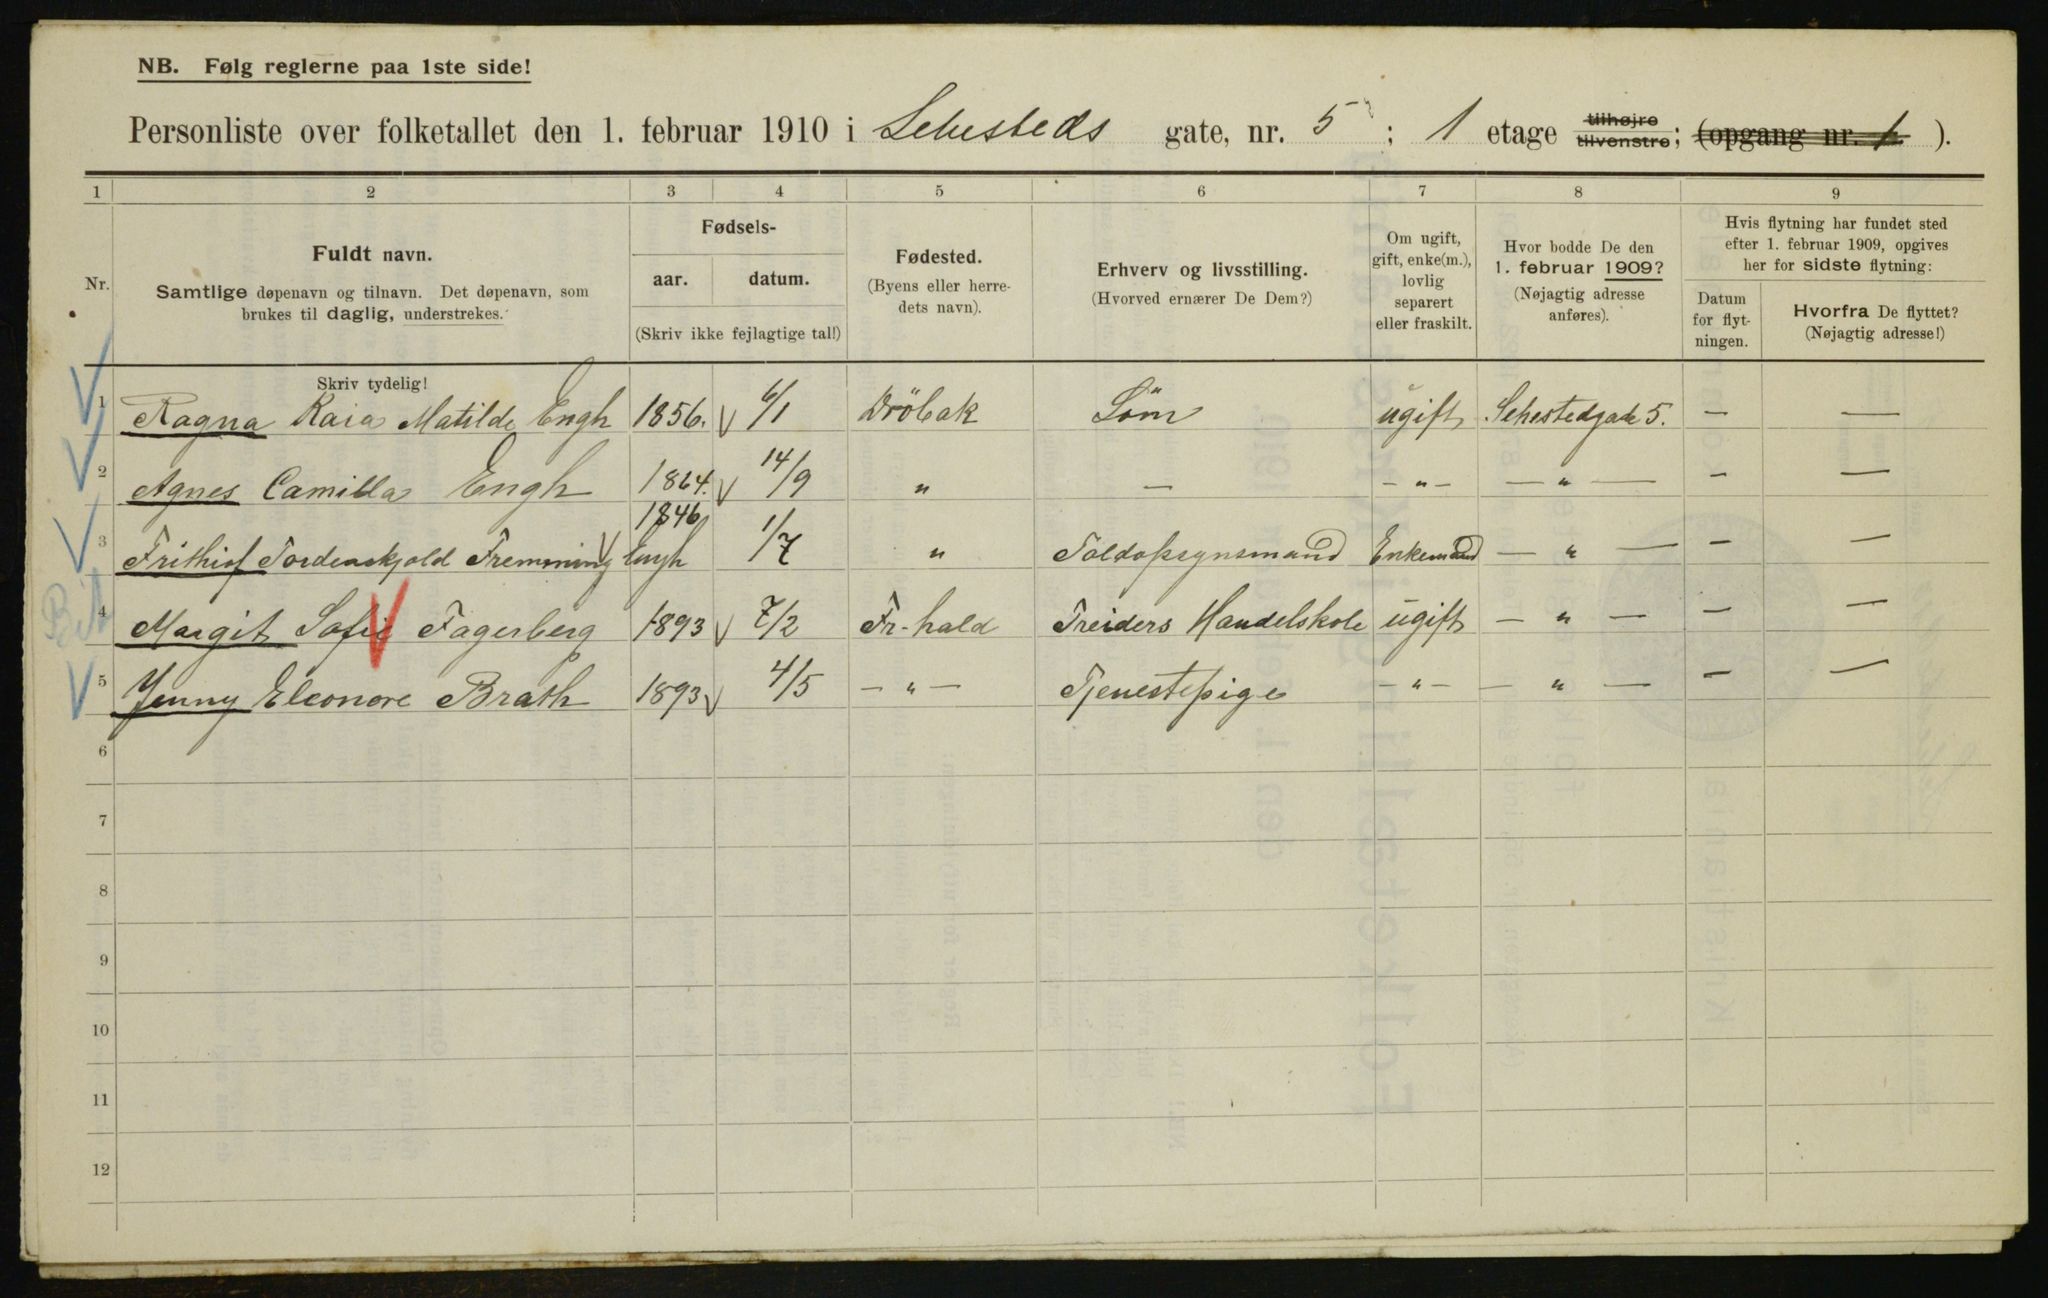 NB. Følg reglerne paa 1ste side!
Personliste over folketallet den 1. februar 1910 i Sehesteds gate, nr. 5 ; 1 etage tilhøjre tilvenstre; (opgang nr. 1 ).
1 2 3 4 5 6 7 8 9
Nr. Fuldt navn. Samtlige døpenavn og tilnavn. Det døpenavn, som brukes til daglig, understrekes.
Fødsels-
aar. datum.
(Skriv ikke fejlagtige tal!)
Fødested.
(Byens eller herredets navn).
Erhverv og livsstilling.
(Hvorved ernærer De Dem?)
Om ugift, gift, enke(m.), lovlig separert eller fraskilt.
Hvor bodde De den 1. februar 1909?
(Nøjagtig adresse anføres).
Hvis flytning har fundet sted efter 1. februar 1909, opgives her for sidste flytning:
Datum for flytningen.
Hvorfra De flyttet?
(Nøjagtig adresse!)
Skriv tydelig!
1 Ragna Kaia Matilde Engh 1856. 6/1 Dröbak Söm ugift Sehestedgade 5. — —
2 Agnes Camilla Engh 1864. 14/9 " — — " — — " — — —
3 Frithiof Tordenskjold Fremming Engh 1846 1/7 " Toldopsynsmand Enkemand — " — — —
Bit
4 Margit Sofie Fagerberg 1893 7/2 Fr-hald Treiders Handelskole ugift — " — — —
5 Jenny Eleonore Brath 1893 4/5 — " — Tjenestepige — " — — " — — —
6
7
8
9
10
11
12